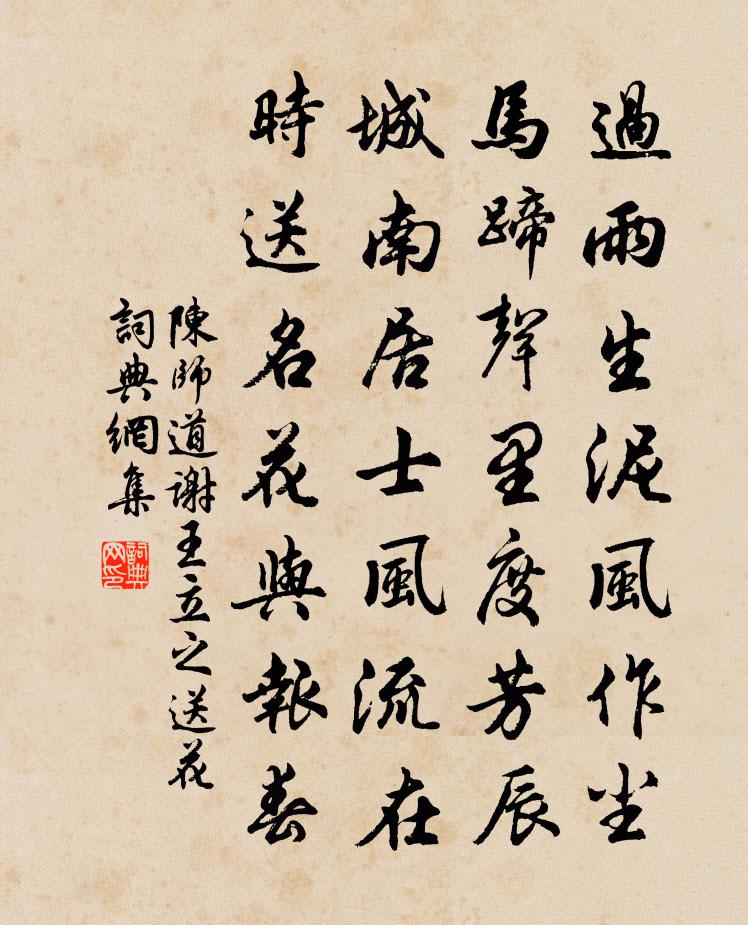 過雨生泥風作尘
馬蹄聲里度芳辰
城南居士風流在
時送名花與報春
陳師道謝王立之送花
詞典網集
詞典网印